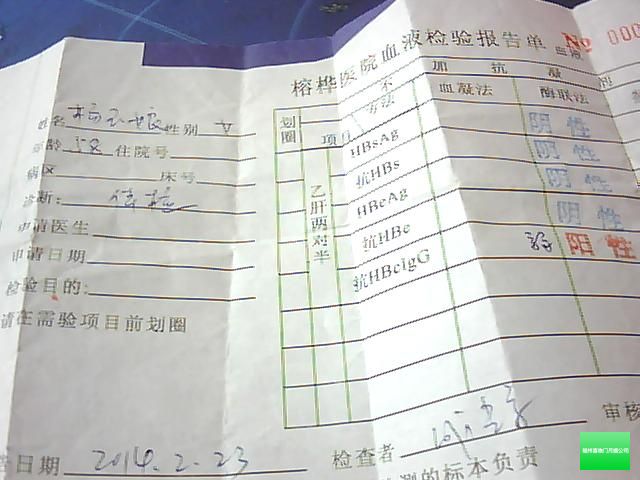 榕桦医院血液检验报告单 № 000
不 加 抗 凝
方法 血凝法 酶联法
姓名 性别
年龄 58 住院号
病区 床号
诊断:
申请医生
申请日期
检验目的:
请在需验项目前划圈
划圈 项目
乙肝两对半
HBsAg 阴性
抗HBs 阴性
HBeAg 阴性
抗HBe 阴性
抗HBcIgG 阳性
告日期 2014.2.23 检查者 审核
测的标本负责